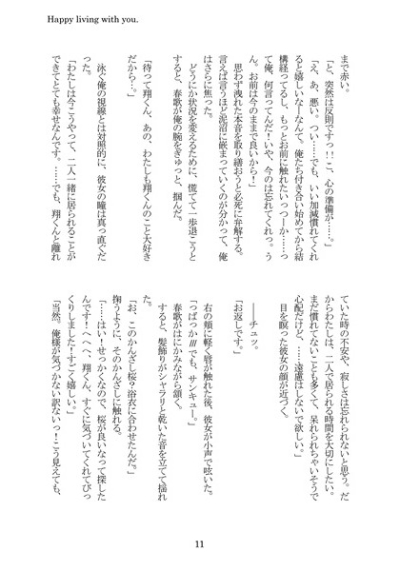 Happy living with you.
まで赤い。
「と、突然は反則ですっ！こ、心の準備が……」
「え、あ、悪い。つい……でも、いい加減慣れてくれ
ると嬉しいなーなんて。俺たち付き合い始めてから結
構経ってるし、もっとお前に触れたいっつーか……っ
て俺、何言ってんだ！いや、今のは忘れてくれっ。う
ん。お前は今のままで良いから！」
思わず洩れた本音を取り繕おうと必死に弁解する。
言えば言うほど泥沼に嵌まっていくのが分かって、俺
はさらに焦った。
どうにか状況を変えるために、慌てて一歩退こうと
すると、春歌が俺の腕をぎゅっと、掴んだ。
「待って翔くん、あの、わたしも翔くんのこと大好き
だから…」
泳ぐ俺の視線とは対照的に、彼女の瞳は真っ直ぐだ
った。
「わたしは今こうやって、二人一緒に居られることが
できてとても幸せなんです。……でも、翔くんと離れ
ていた時の不安や、寂しさは忘れられないと思う。だ
からわたしは、二人で居られる時間を大切にしたい。
まだ慣れてないことも多くて、呆れられちゃいそうで
心配だけど、……遠慮はしないで欲しい。」
目を瞑った彼女の顔が近づく。
――チュッ。
「お返しです。」
右の頬に軽く唇が触れた後、彼女が小声で呟いた。
「っばっかⅲでも、サンキュー。」
春歌がはにかみながら頷く。
すると、髪飾りがシャラリと乾いた音を立てて揺れ
た。
「お、このかんざし桜？浴衣に合わせたんだ。」
掬うように、そのかんざしに触れる。
「……はい！せっかくなので、桜が良いなって探した
んです！へへへ、翔くん、すぐに気づいてくれてびっ
くりしました！すごく嬉しい。」
「当然。俺様が気づかない訳ないっ！こう見えても、
11